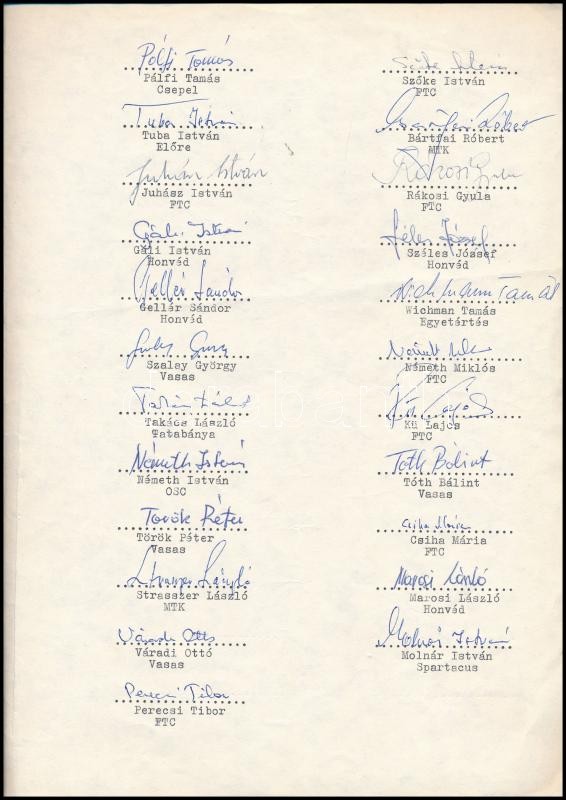 Pálfi Tamás
Pálfi Tamás
Csepel
Tuba István
Tuba István
Előre
Juhász István
Juhász István
FTC
Gáli István
Gáli István
Honvéd
Gellér Sándor
Gellér Sándor
Honvéd
Szalay György
Vasas
Takács László
Tatabánya
Németh István
Németh István
OSC
Török Péter
Török Péter
Vasas
Strasszer László
Strasszer László
MTK
Váradi Ottó
Váradi Ottó
Vasas
Perecsi Tibor
Perecsi Tibor
FTC
Szőke István
FTC
Bártfai Róbert
Bártfai Róbert
MTK
Rákosi Gyula
Rákosi Gyula
FTC
Széles József
Honvéd
Wichmann Tamás
Wichman Tamás
Egyetértés
Németh Miklós
FTC
Kű Lajos
FTC
Tóth Bálint
Tóth Bálint
Vasas
Csiha Mária
Csiha Mária
FTC
Marosi László
Marosi László
Honvéd
Molnár István
Molnár István
Spartacus